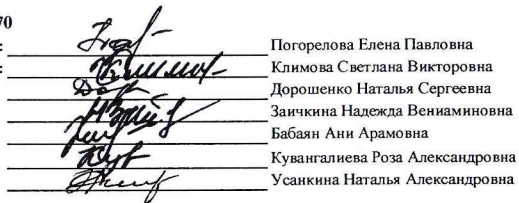 70
: Погорелова Елена Павловна
: Климова Светлана Викторовна
Дорошенко Наталья Сергеевна
Заичкина Надежда Вениаминовна
Бабаян Ани Арамовна
Кувангалиева Роза Александровна
Усанкина Наталья Александровна